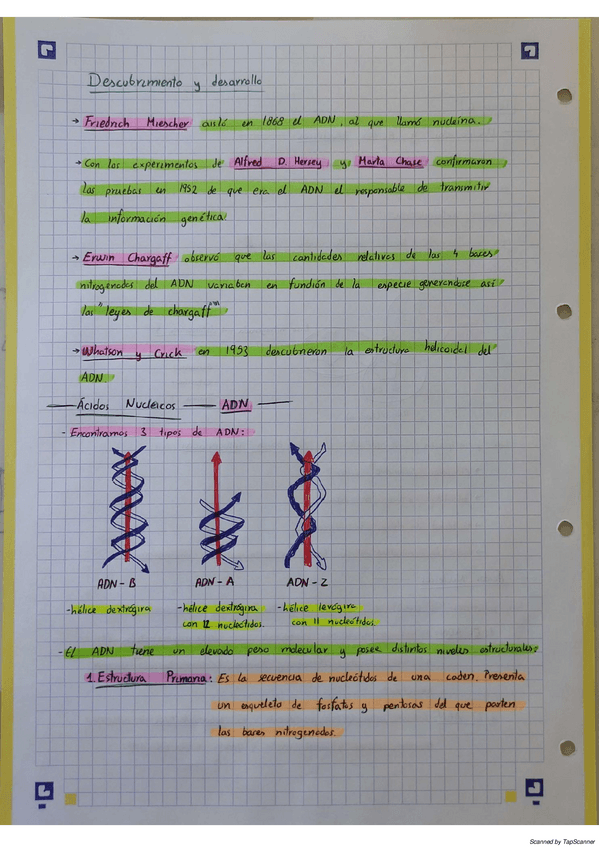 Descubrimiento y desarrollo
→ Friedrich Miescher aisló en 1868 el ADN, al que llamó nucleína.
→ Con los experimentos de Alfred D. Hersey y Marla Chase confirmaron
las pruebas en 1952 de que era el ADN el responsable de transmitir
la información genética
→ Erwin Chargaff observó que las cantidades relativas de las 4 bases
nitrogenadas del ADN variaban en función de la especie generandose así
las "leyes de chargaff"
→ Whatson y Crick en 1953 descubrieron la estructura helicoidal del
ADN
Ácidos Nucleicos — ADN
- Encontramos 3 tipos de ADN:
ADN-B ADN-A ADN-Z
-hélice dextrógira -hélice dextrógira -hélice levógira
con 12 nucleótidos. con 11 nucleótidos.
- El ADN tiene un elevado peso molecular y posee distintos niveles estructurales:
1. Estructura Primaria: Es la secuencia de nucleótidos de una caden. Presenta
un esqueleto de fosfatos y pentosas del que parten
las bases nitrogenadas.
Scanned by TapScanner